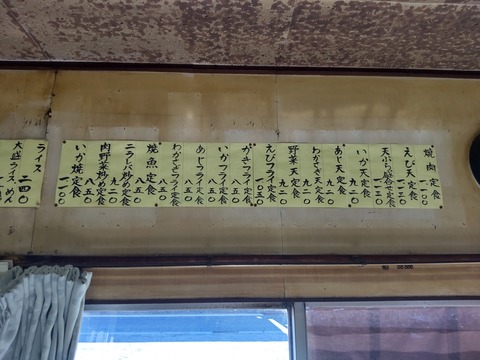 焼肉定食 一一〇〇
えび天定食 一一五〇
天ぷら盛合せ定食
いか天定食 九二〇
あじ天定食 九二〇
わかさぎ天定食 九二〇
野菜天定食 九二〇
えびフライ定食 一〇五〇
かきフライ定食
いかフライ定食 八五〇
あじフライ定食 八五〇
わかさぎフライ定食 八五〇
焼魚定食 八五〇
ニラレバ炒め定食 九二〇
肉野菜炒め定食 八五〇
いか焼定食 一一〇〇
ライス 二四〇
大盛ライス